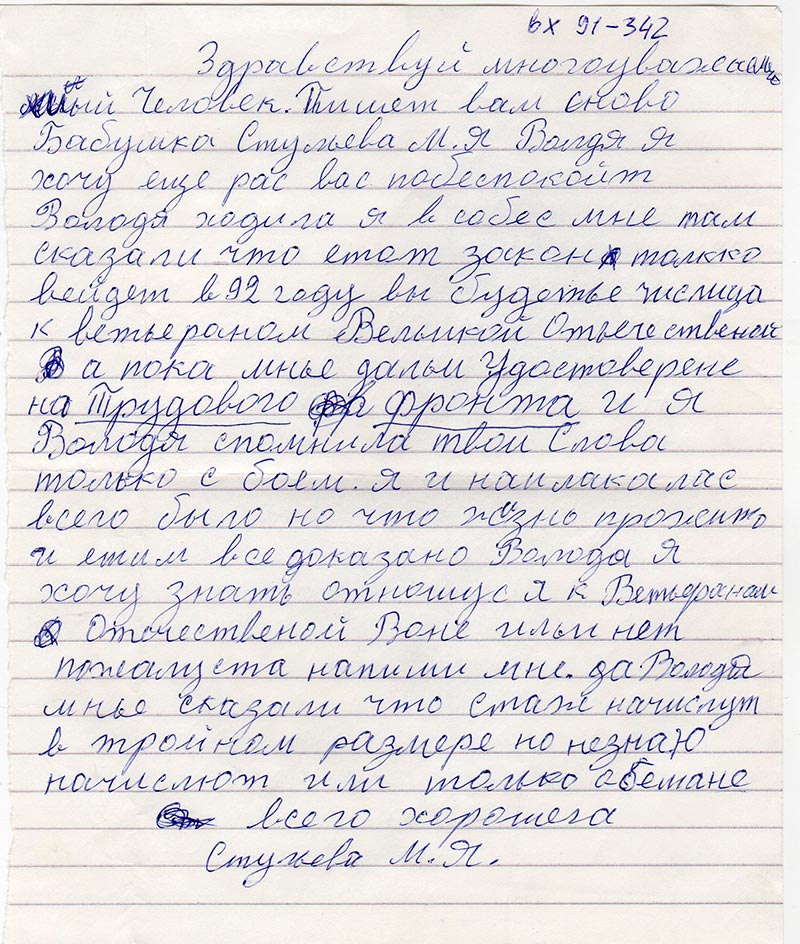 вх 91-342
Здравствуй многоуважаемы
ный Человек. Пишет вам сново
Бабушка Стульева М.Я Волдя я
хочу еще рас вас побеспокойт
Володя ходила я в собес мне там
сказали что етот закон толкко
вейдет в 92 году вы будетье числица
к ветьераном Великой Отьечественой
а пока мнье дальи Удостоверене
на Трудового фронта и я
Володя спомнила твои Слова
только с боем. я и наплакалас
всего было но что жизнь прожито
и етим все доказано Володя я
хочу знать отношус я к Ветьераном
Отечественой Воне ильи нет
пожалуста напиши мне. да Володя
мнье сказали что стаж начислут
в тройном размере но незнаю
начислют или только обемане
всего хорошега
М.Я.